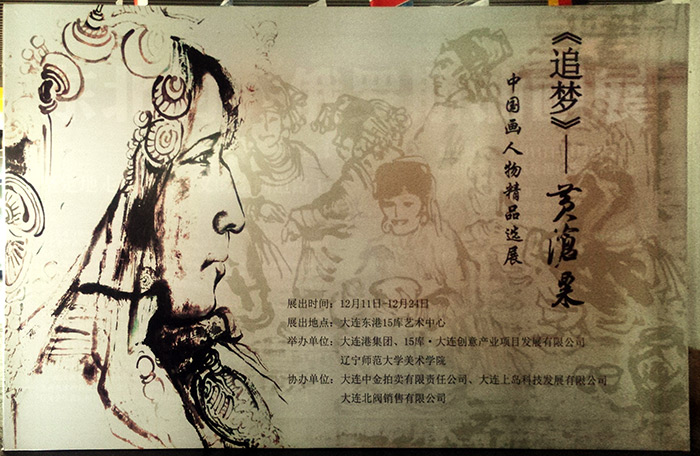 《追梦》——黄沧粟
中国画人物精品选展
展出时间：12月11日-12月24日
展出地点：大连东港15库艺术中心
举办单位：大连港集团、15库·大连创意产业项目发展有限公司
辽宁师范大学美术学院
协办单位：大连中金拍卖有限责任公司、大连上岛科技发展有限公司
大连北阀销售有限公司